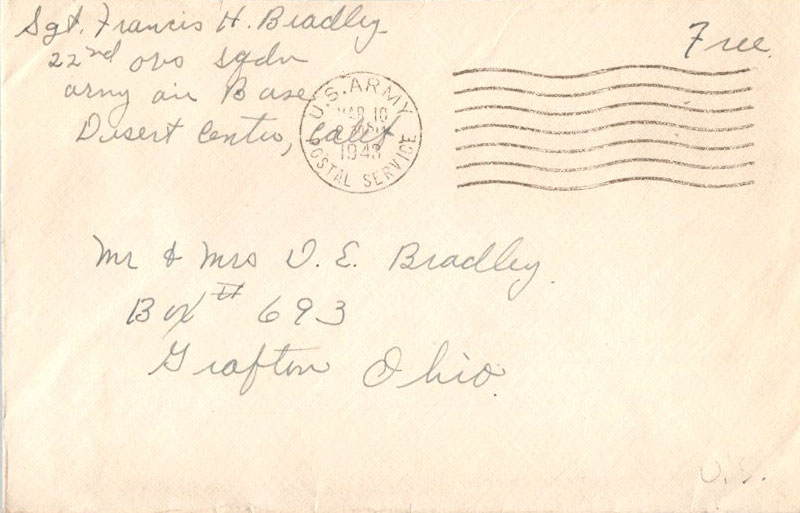 Sgt. Francis H. Bradley
22nd obs sqdn
army air Base
Desert Center, Calif
Free.
U.S. ARMY
MAR 10
1943
POSTAL SERVICE
Mr & Mrs D. E. Bradley.
Box # 693
Grafton Ohio.
U.S.